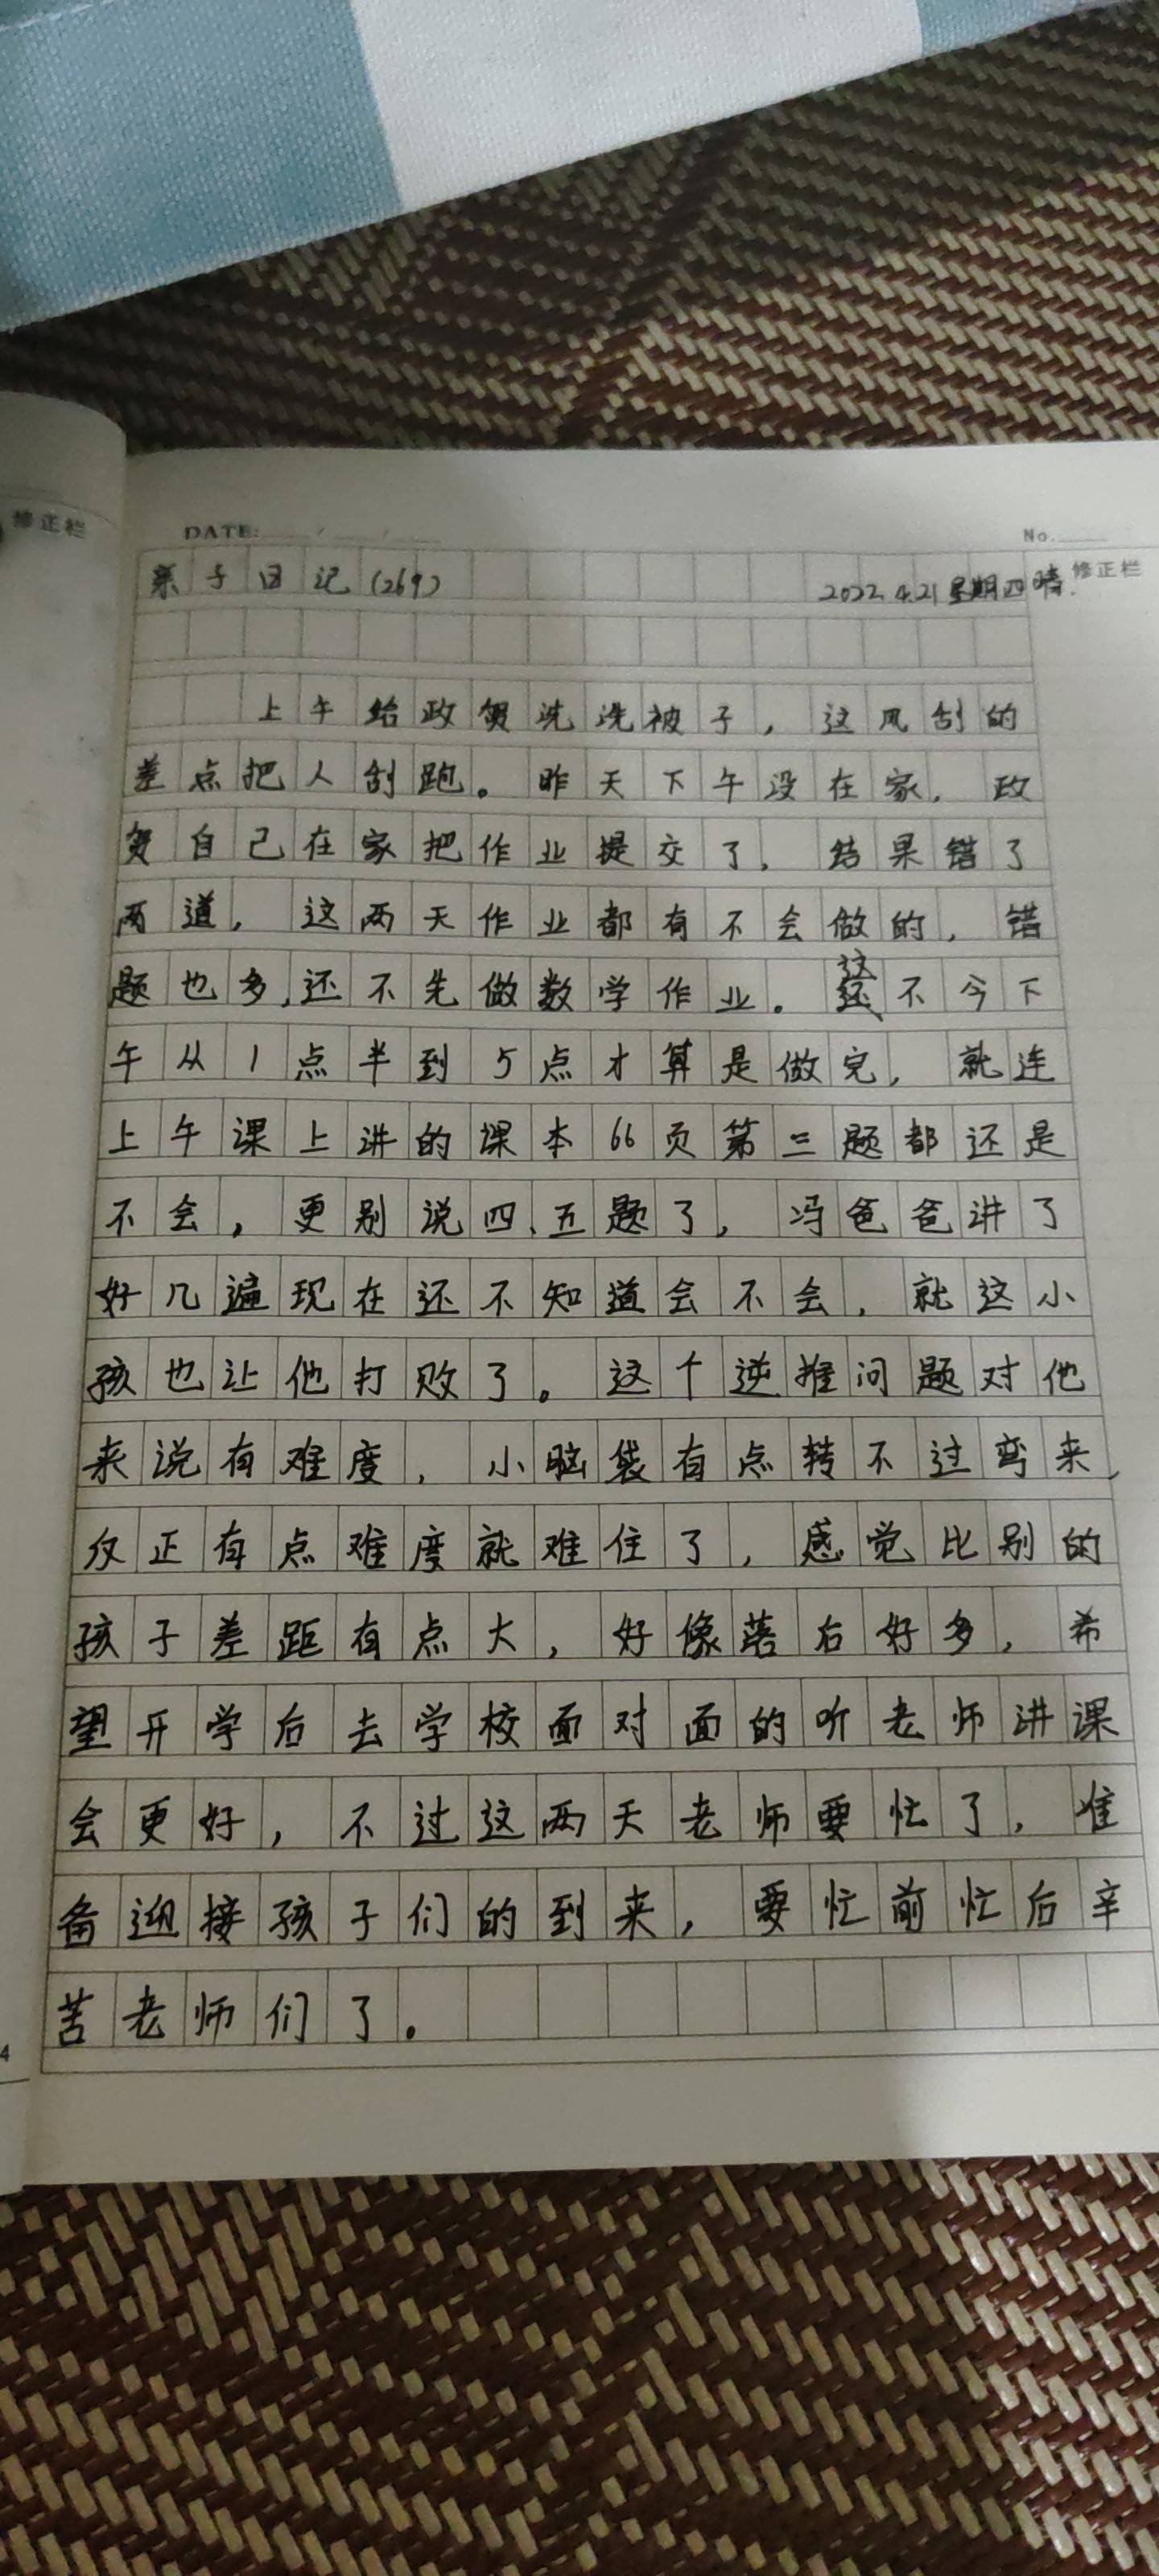 修正栏
DATE: / /
No.
亲子日记(269) 2022.4.21星期四晴.
修正栏
上午给政贺洗洗被子，这风刮的
差点把人刮跑。昨天下午没在家，政
贺自己在家把作业提交了，结果错了
两道，这两天作业都有不会做的，错
题也多，还不先做数学作业。这不今下
午从1点半到5点才算是做完，就连
上午课上讲的课本66页第三题都还是
不会，更别说四、五题了，冯爸爸讲了
好几遍现在还不知道会不会，就这小
孩也让他打败了。这个逆推问题对他
来说有难度，小脑袋有点转不过弯来，
反正有点难度就难住了，感觉比别的
孩子差距有点大，好像落后好多，希
望开学后去学校面对面的听老师讲课
会更好，不过这两天老师要忙了，准
备迎接孩子们的到来，要忙前忙后辛
苦老师们了。
4